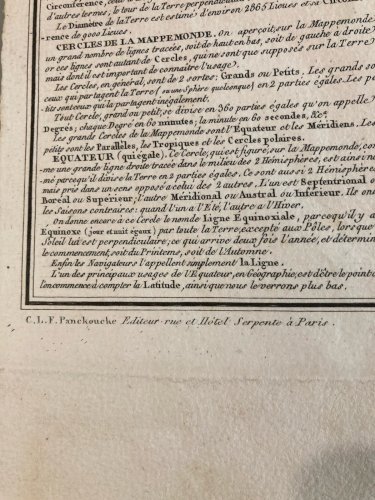 Circonférence, ceux
d'autres termes, le tour de la Terre perpendicu
Le Diametre de la Terre est estimé d'environ 2865 Lieues et sa Circon
rence de 9000 Lieues.
CERCLES DE LA MAPPEMONDE. On aperçoit, sur la Mappemonde
un grand nombre de lignes tracées, soit de haut en bas, soit de gauche à droite
or ces lignes sont autant de Cercles, qui ne sont que supposés sur la Terre
mais dont il est important de connaitre l'usage.
Les Cercles, en général, sont de 2 sortes; Grands ou Petits. Les grands so
ceux qui partagent la Terre (ou une Sphère quelconque) en 2 parties égales. Les pe
tits sont ceux qui la partagent inégalement.
Tout Cercle, grand ou petit, se divise en 360 parties égales qu'on appelle
Degrés; chaque Degré en 60 minutes; la minute en 60 secondes, &c.
Les grands Cercles de la Mappemonde sont l'Equateur et les Méridiens. Les
petits sont les Paralléles, les Tropiques et les Cercles polaires.
EQUATEUR (qui égale). Ce Cercle, qui est figuré, sur la Mappemonde, com
me une grande ligne droite tracée dans le milieu des 2 Hémisphères, est ainsi n
mé parcequ'il divise la Terre en 2 parties égales. Ce sont aussi 2 Hémisphère
mais pris dans un sens opposé a celui des 2 autres. L'un est Septentrional o
Boréal ou Superieur; l'autre Méridional ou Austral ou Inférieur. Ils on
les Saisons contraires: quand l'un a l'Eté, l'autre a l'Hiver.
On donne encore à ce cercle le nom de Ligne Equinoxiale, parcoqu'il y a
Equinoxe (jour et nuit égaux) par toute la Terre, excepté aux Pôles, lorsque
Soleil lui est perpendiculaire; ce qui arrive deux fois l'année, et détermin
le commencement, soit du Printems, soit de l'Automne.
Enfin les Navigateurs l'appellent simplement la Ligne.
L'un des principaux usages de l'Equateur, en Géographie, est d'être le point
l'on commence à compter la Latitude, ainsi que nous le verrons plus bas.
C. L. F. Panckouche Editeur rue et Hôtel Serpente à Paris.